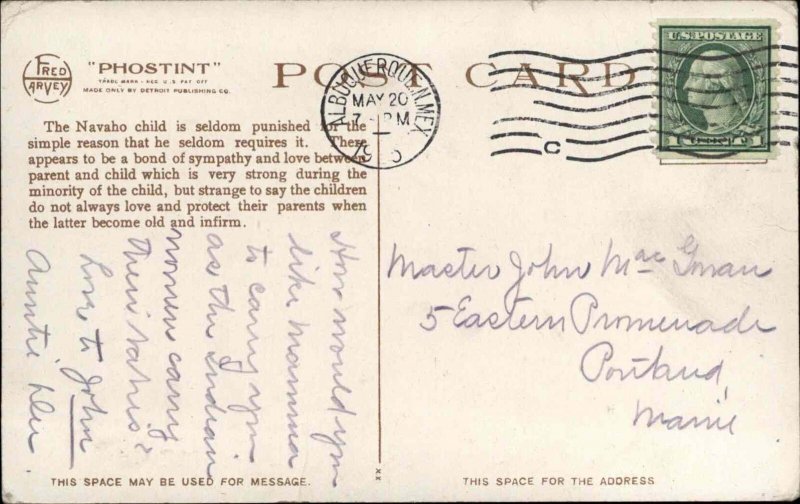 FRED HARVEY
"PHOSTINT"
TRADE MARK - REG. U.S. PAT. OFF.
MADE ONLY BY DETROIT PUBLISHING CO.
POST CARD
ALBUQUERQUE, N. MEX.
MAY 20
7 - PM
C
U.S. POSTAGE
The Navaho child is seldom punished for the
simple reason that he seldom requires it. There
appears to be a bond of sympathy and love between
parent and child which is very strong during the
minority of the child, but strange to say the children
do not always love and protect their parents when
the latter become old and infirm.
How would you
like Mamma
to carry you
as the Indian
women carry
their babies?
Love to John
Auntie
Master John
5 Eastern Promenade
Portland,
Maine
THIS SPACE MAY BE USED FOR MESSAGE.
XX
THIS SPACE FOR THE ADDRESS